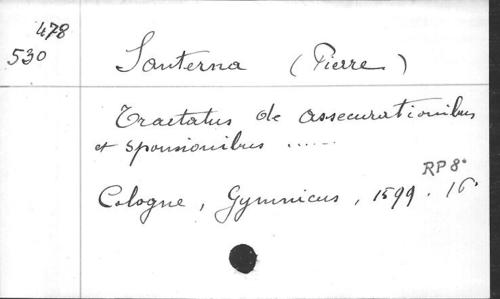 478
530
Santerna (Pierre)
Tractatus de assecurationibus
et sponsionibus ......
RP 8°
Cologne, Gymnicus, 1599. 16°